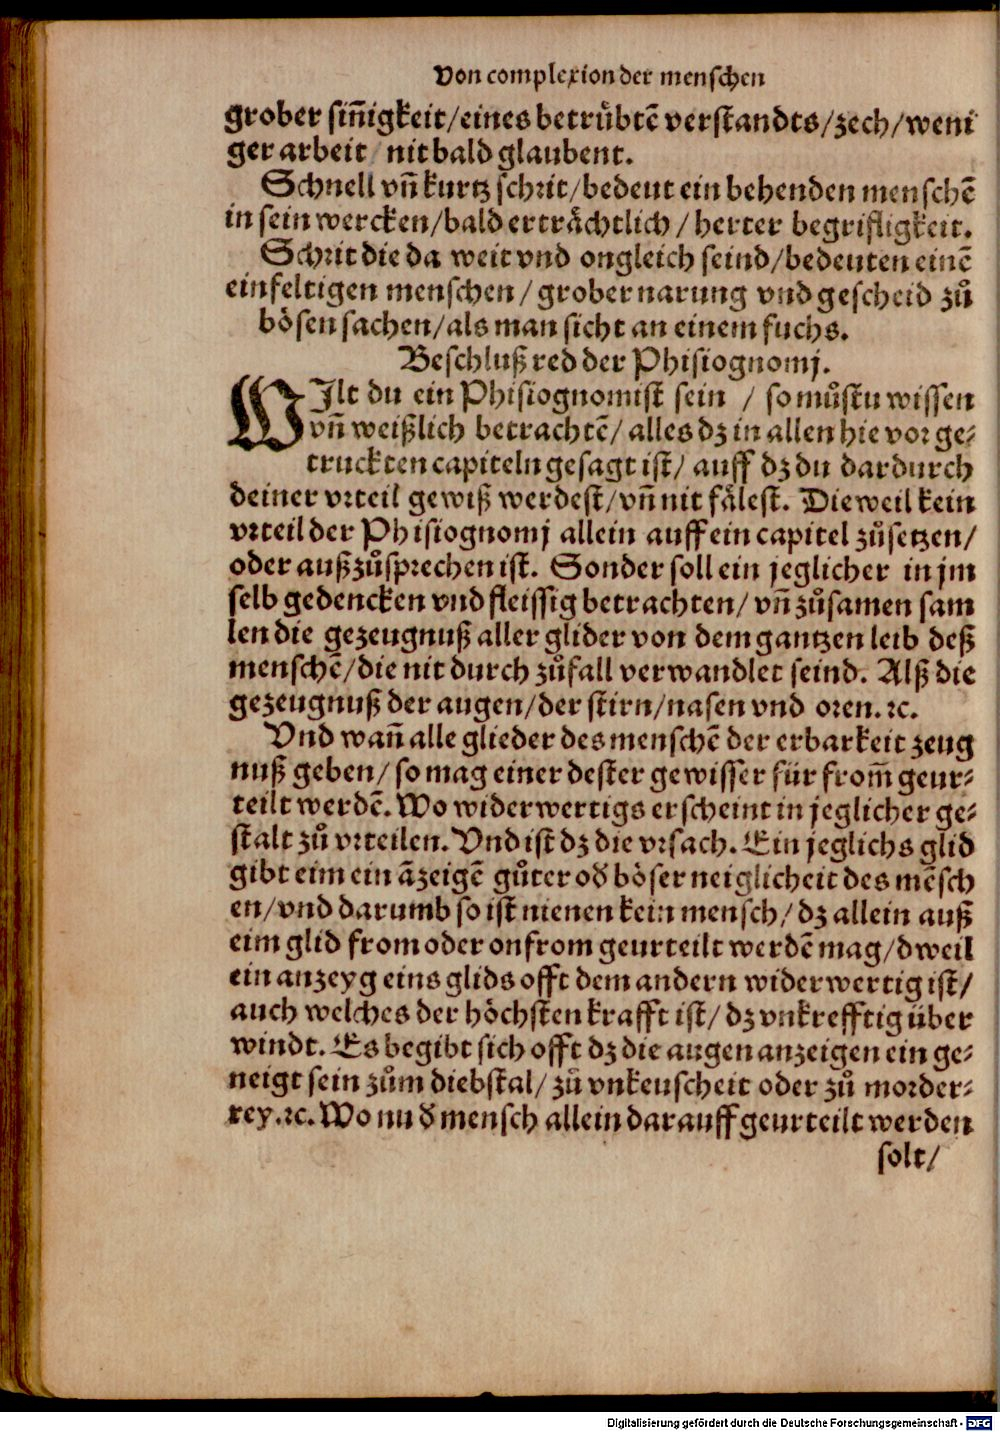 Von complexion der menschen
grober sin̄igkeit/eines betruͤbtē verstandts/zech/weni
ger arbeit / nit bald glaubent.
Schnell vn̄ kurtz schrit/bedeut ein behenden menschē
in sein wercken/bald ertraͤchtlich / herter begrifligkeit.
Schrit die da weit vnd ongleich seind/bedeuten einē
einfeltigen menschen / grober narung vnd gescheid zuͦ
boͤsen sachen/als man sicht an einem fuchs.
Beschluß red der Phisiognomj.
WIlt du ein Phisiognomist sein / so muͦstu wissen
vn̄ weißlich betrachtē/ alles dz in allen hie vor ge⸗
truckten capiteln gesagt ist/ auff dz du dardurch
deiner vrteil gewiß werdest/vn̄ nit faͤlest. Dieweil kein
vrteil der Phisiognomj allein auff ein capitel zuͦsetzen/
oder außzuͦsprechen ist. Sonder soll ein jeglicher in jm
selb gedencken vnd fleissig betrachten/ vn̄ zuͦsamen sam
len die gezeugnuß aller glider von dem gantzen leib deß
menschē/die nit durch zuͦfall verwandlet seind. Alß die
gezeugnuß der augen/der stirn/nasen vnd oren. ꝛc.
Vnd wan̄ alle glieder des menschē der erbarkeit zeug
nuß geben/ so mag einer dester gewisser für from̄ geur⸗
teilt werdē. Wo widerwertigs erscheint in jeglicher ge⸗
stalt zuͦ vrteilen. Vnd ist dz die vrsach. Ein jeglichs glid
gibt eim ein āzeigē guͦter od̕ boͤser neiglicheit des mēsch
en/vnd darumb so ist nienen kein mensch/ dz allein auß
eim glid from oder onfrom geurteilt werdē mag/dweil
ein anzeyg eins glids offt dem andern widerwertig ist/
auch welches der hoͤchsten krafft ist/ dz vnkrefftig über
windt. Es begibt sich offt dz die augen anzeigen ein ge⸗
neigt sein zuͦm diebstal/ zuͦ vnkeuscheit oder zuͦ morder⸗
rey.ꝛc. Wo nu d̕ mensch allein darauff geurteilt werden
solt/
Digitalisierung gefördert durch die Deutsche Forschungsgemeinschaft - DFG